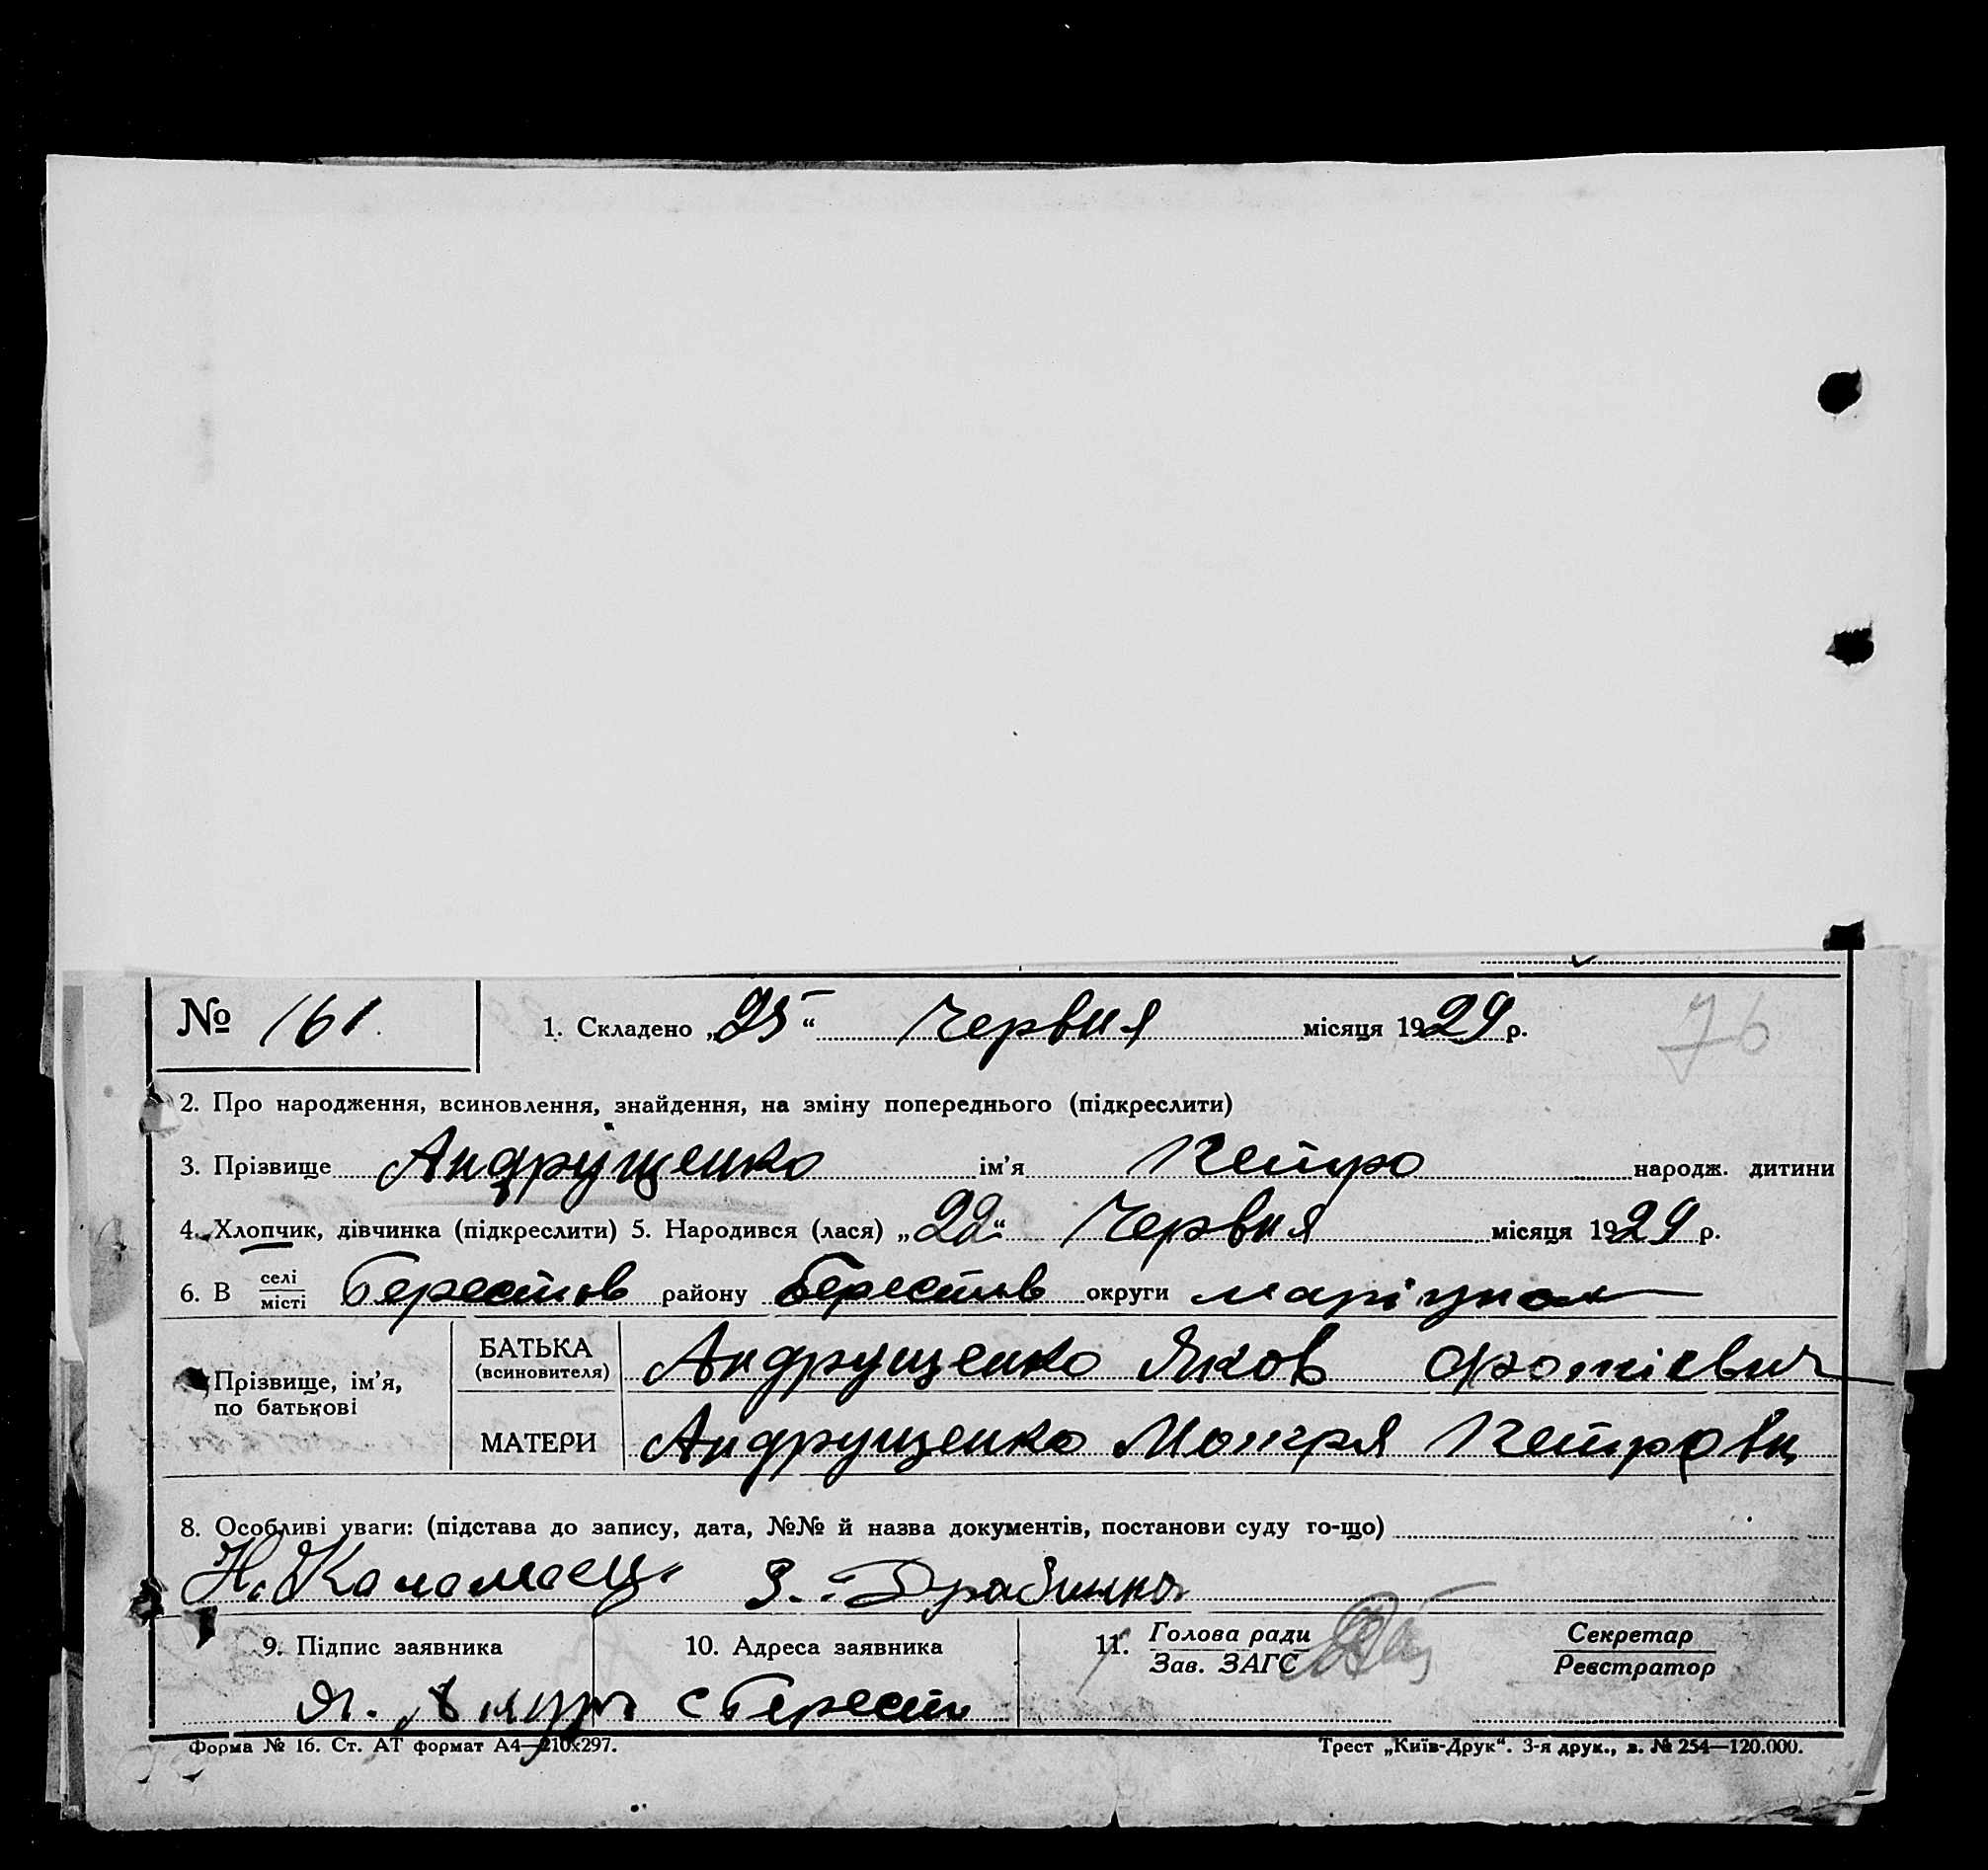 76
№ 161. 1. Складено „25“ Червня місяця 1929 р.
2. Про народження, всиновлення, знайдення, на зміну попереднього (підкреслити)
3. Прізвище Андрущенко ім’я Петро народж. дитини
4. Хлопчик, дівчинка (підкреслити) 5. Народився (лася) „22“ Червня місяця 1929 р.
6. В селі/місті Берестов району Берестов округи маріупол
Прізвище, ім’я, по батькові
БАТЬКА (всиновителя) Андрущенко Яков Фотієвич
МАТЕРИ Андрущенко Мотря Петровн
8. Особливі уваги: (підстава до запису, дата, №№ й назва документів, постанови суду то-що)
Н.
9. Підпис заявника 10. Адреса заявника 11. Голова ради/Зав. ЗАГС Секретар/Реєстратор
с Берест
Форма № 16. Ст. АТ формат А4—210х297. Трест „Київ-Друк“. 3-я друк., з. № 254—120.000.